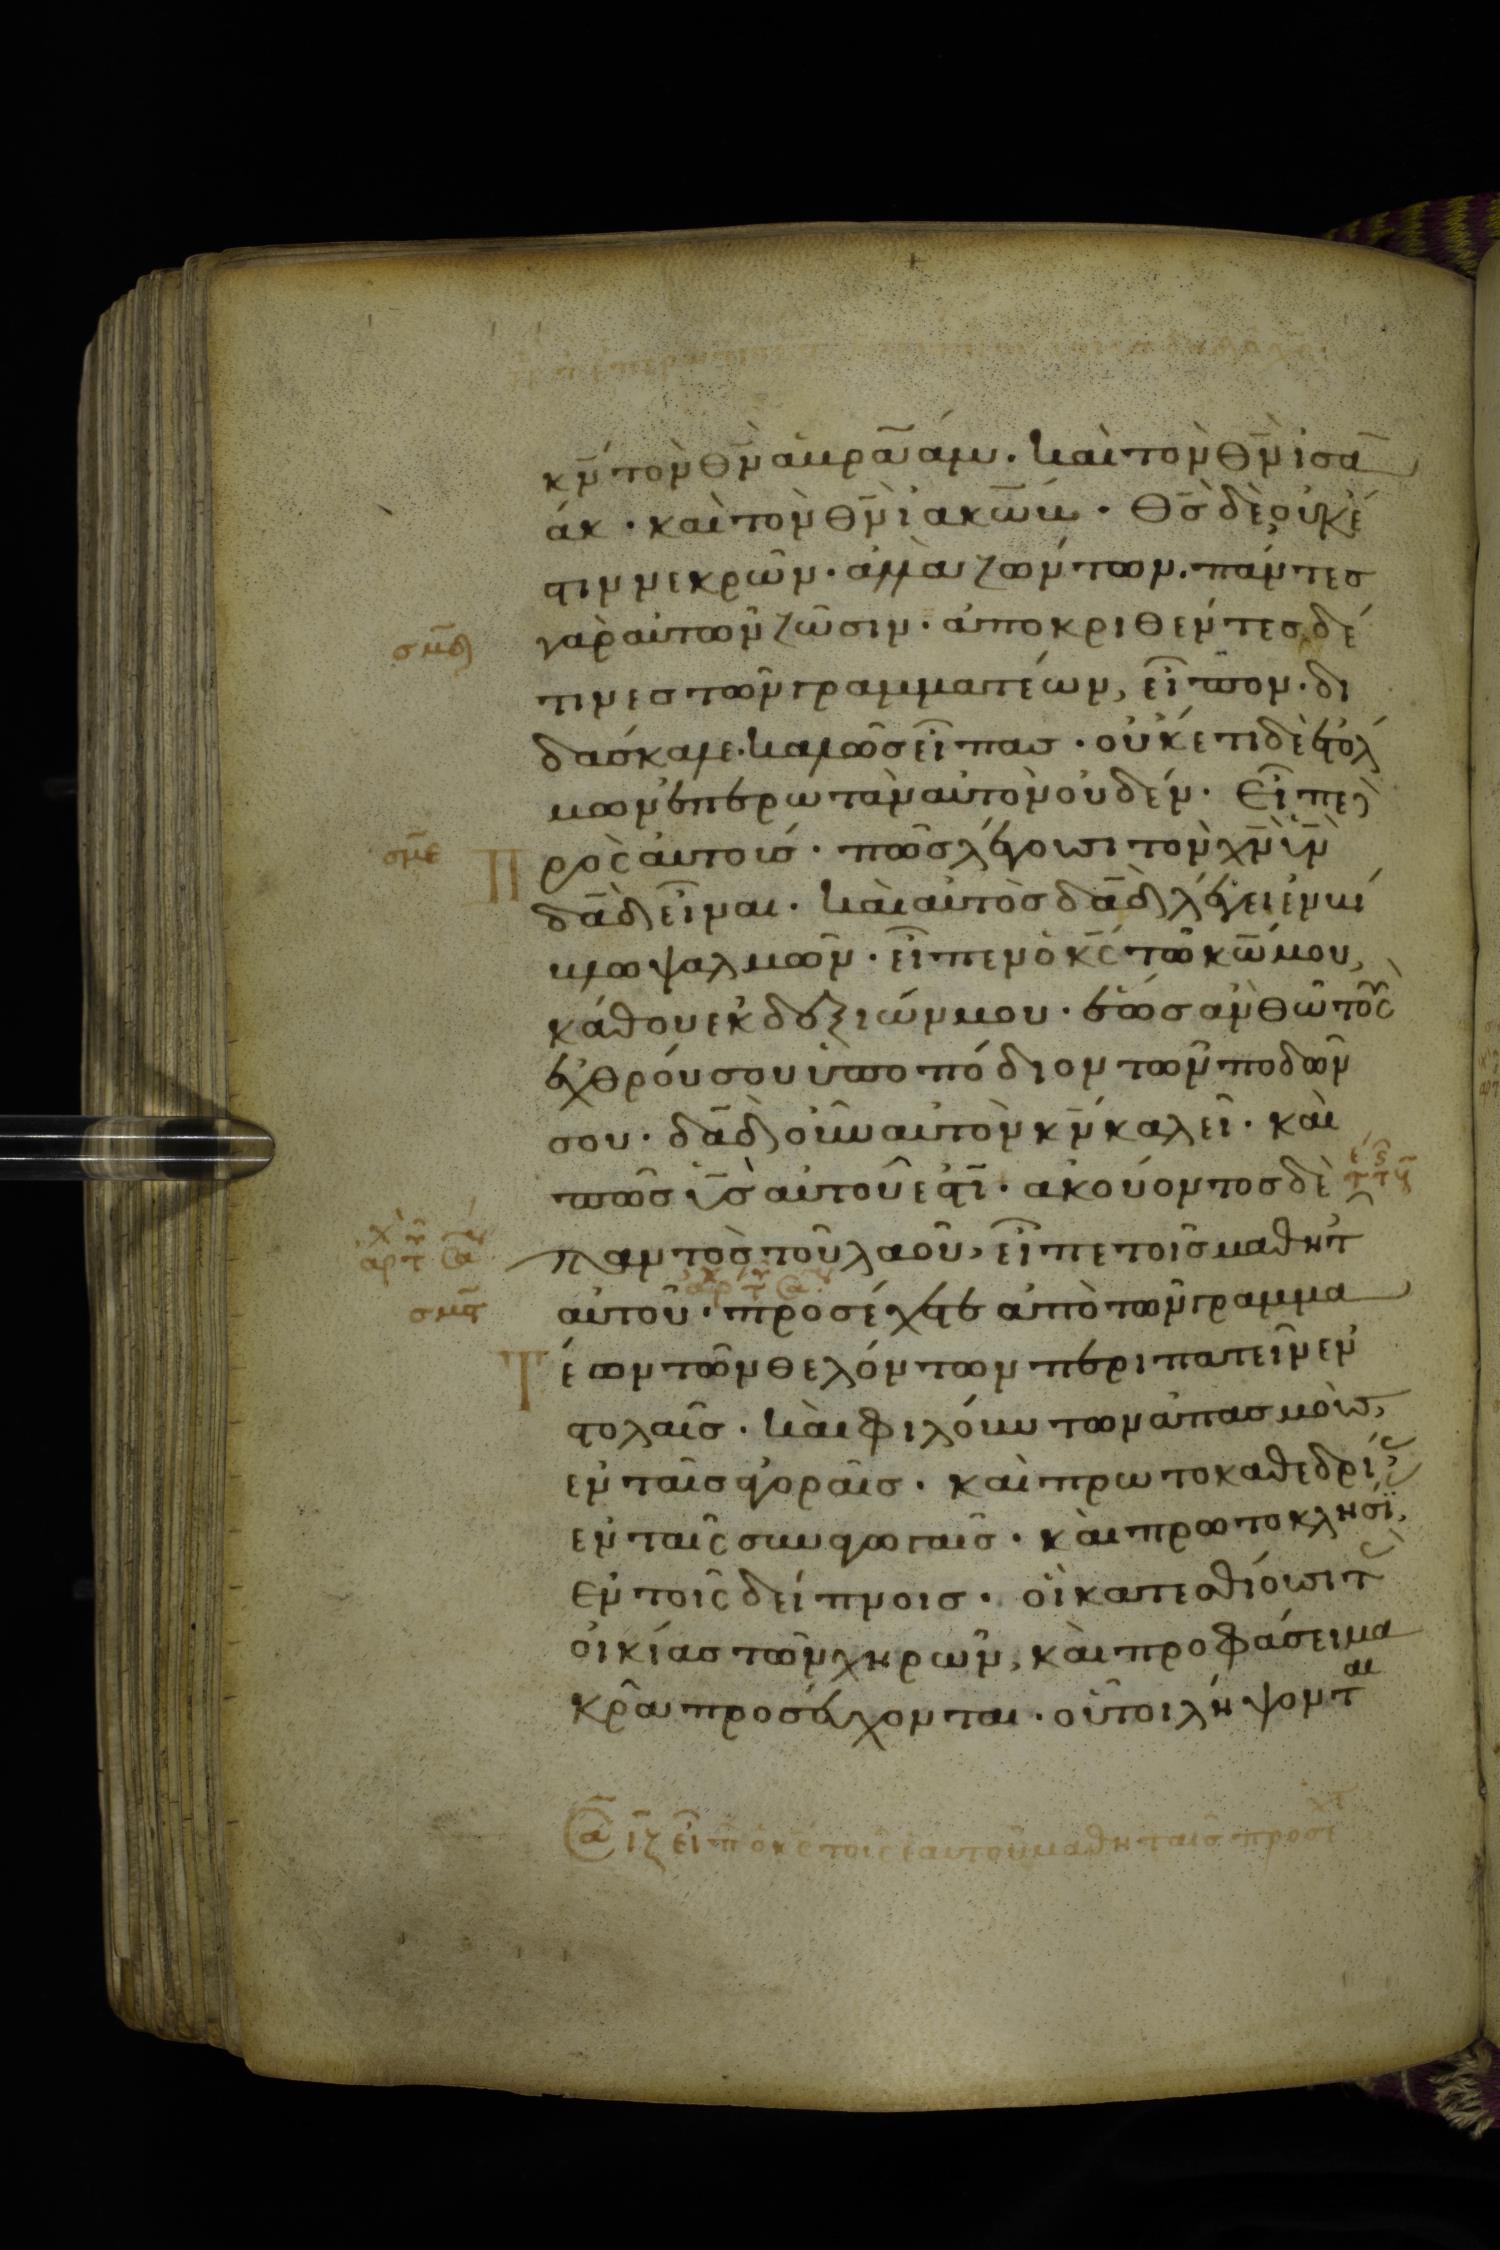 κν̅ τὸν θν̅ ἀβραάμ· καὶ τὸν θν̅ ἰσα
άκ· καὶ τὸν θν̅ ἰακώβ· θς̅ δὲ οὐκ έ
στιν νεκρῶν· ἀλλὰ ζώντων. πάντες
γὰρ αὐτῶ ζῶσιν· ἀποκριθέντες δέ
τινες τῶν γραμματέων, εἶπον· δι
δάσκαλε· καλῶς εἶπας· οὐκέτι δὲ ἐτόλ
μων ἐπερωτᾶν αὐτὸν οὐδέν· Εἶπε
σμδ
σμε
Πρὸς αὐτούς· πῶς λέγουσι τὸν χν̅ υν̅
δα̅δ εἶναι· καὶ αὐτὸς δα̅δ λέγει ἐν βί
βλω ψαλμῶν· εἶπεν ὁ κς̅ τῶ κω̅ μου,
κάθου ἐκ δεξιών μου· ἕως ἂν θῶ τοὺς
ἐχθρούς σου ὑποπόδιον τῶν ποδῶν
σου· δα̅δ οὖν αὐτὸν κν̅ καλεῖ· καὶ
πῶς υς̅ αὐτοῦ ἐστι· ἀκούοντος δὲ
παντὸς τοῦ λαοῦ, εἶπε τοῖς μαθητ
αὐτοῦ· προσέχετε ἀπὸ τῶν γραμμα
σμς
Τέων τῶν θελόντων περιπατεῖν ἐν
στολαῖς· καὶ φιλούντων ἀσπασμοὺς,
ἐν ταῖς ἀγοραῖς· καὶ πρωτοκαθεδρί
ἐν ταῖς συναγωγαῖς· καὶ πρωτοκλησί
ἐν τοῖς δείπνοις· οἳ κατεσθίουσι τ
οἰκίας τῶν χηρῶν, καὶ προφάσει μα
κρᾶ προσεύχονται· οὗτοι λήψοντ
αι
ιζ εἶπ ὁ κς̅ τοῖς ἑαυτοῦ μαθηταῖς προσέχτ